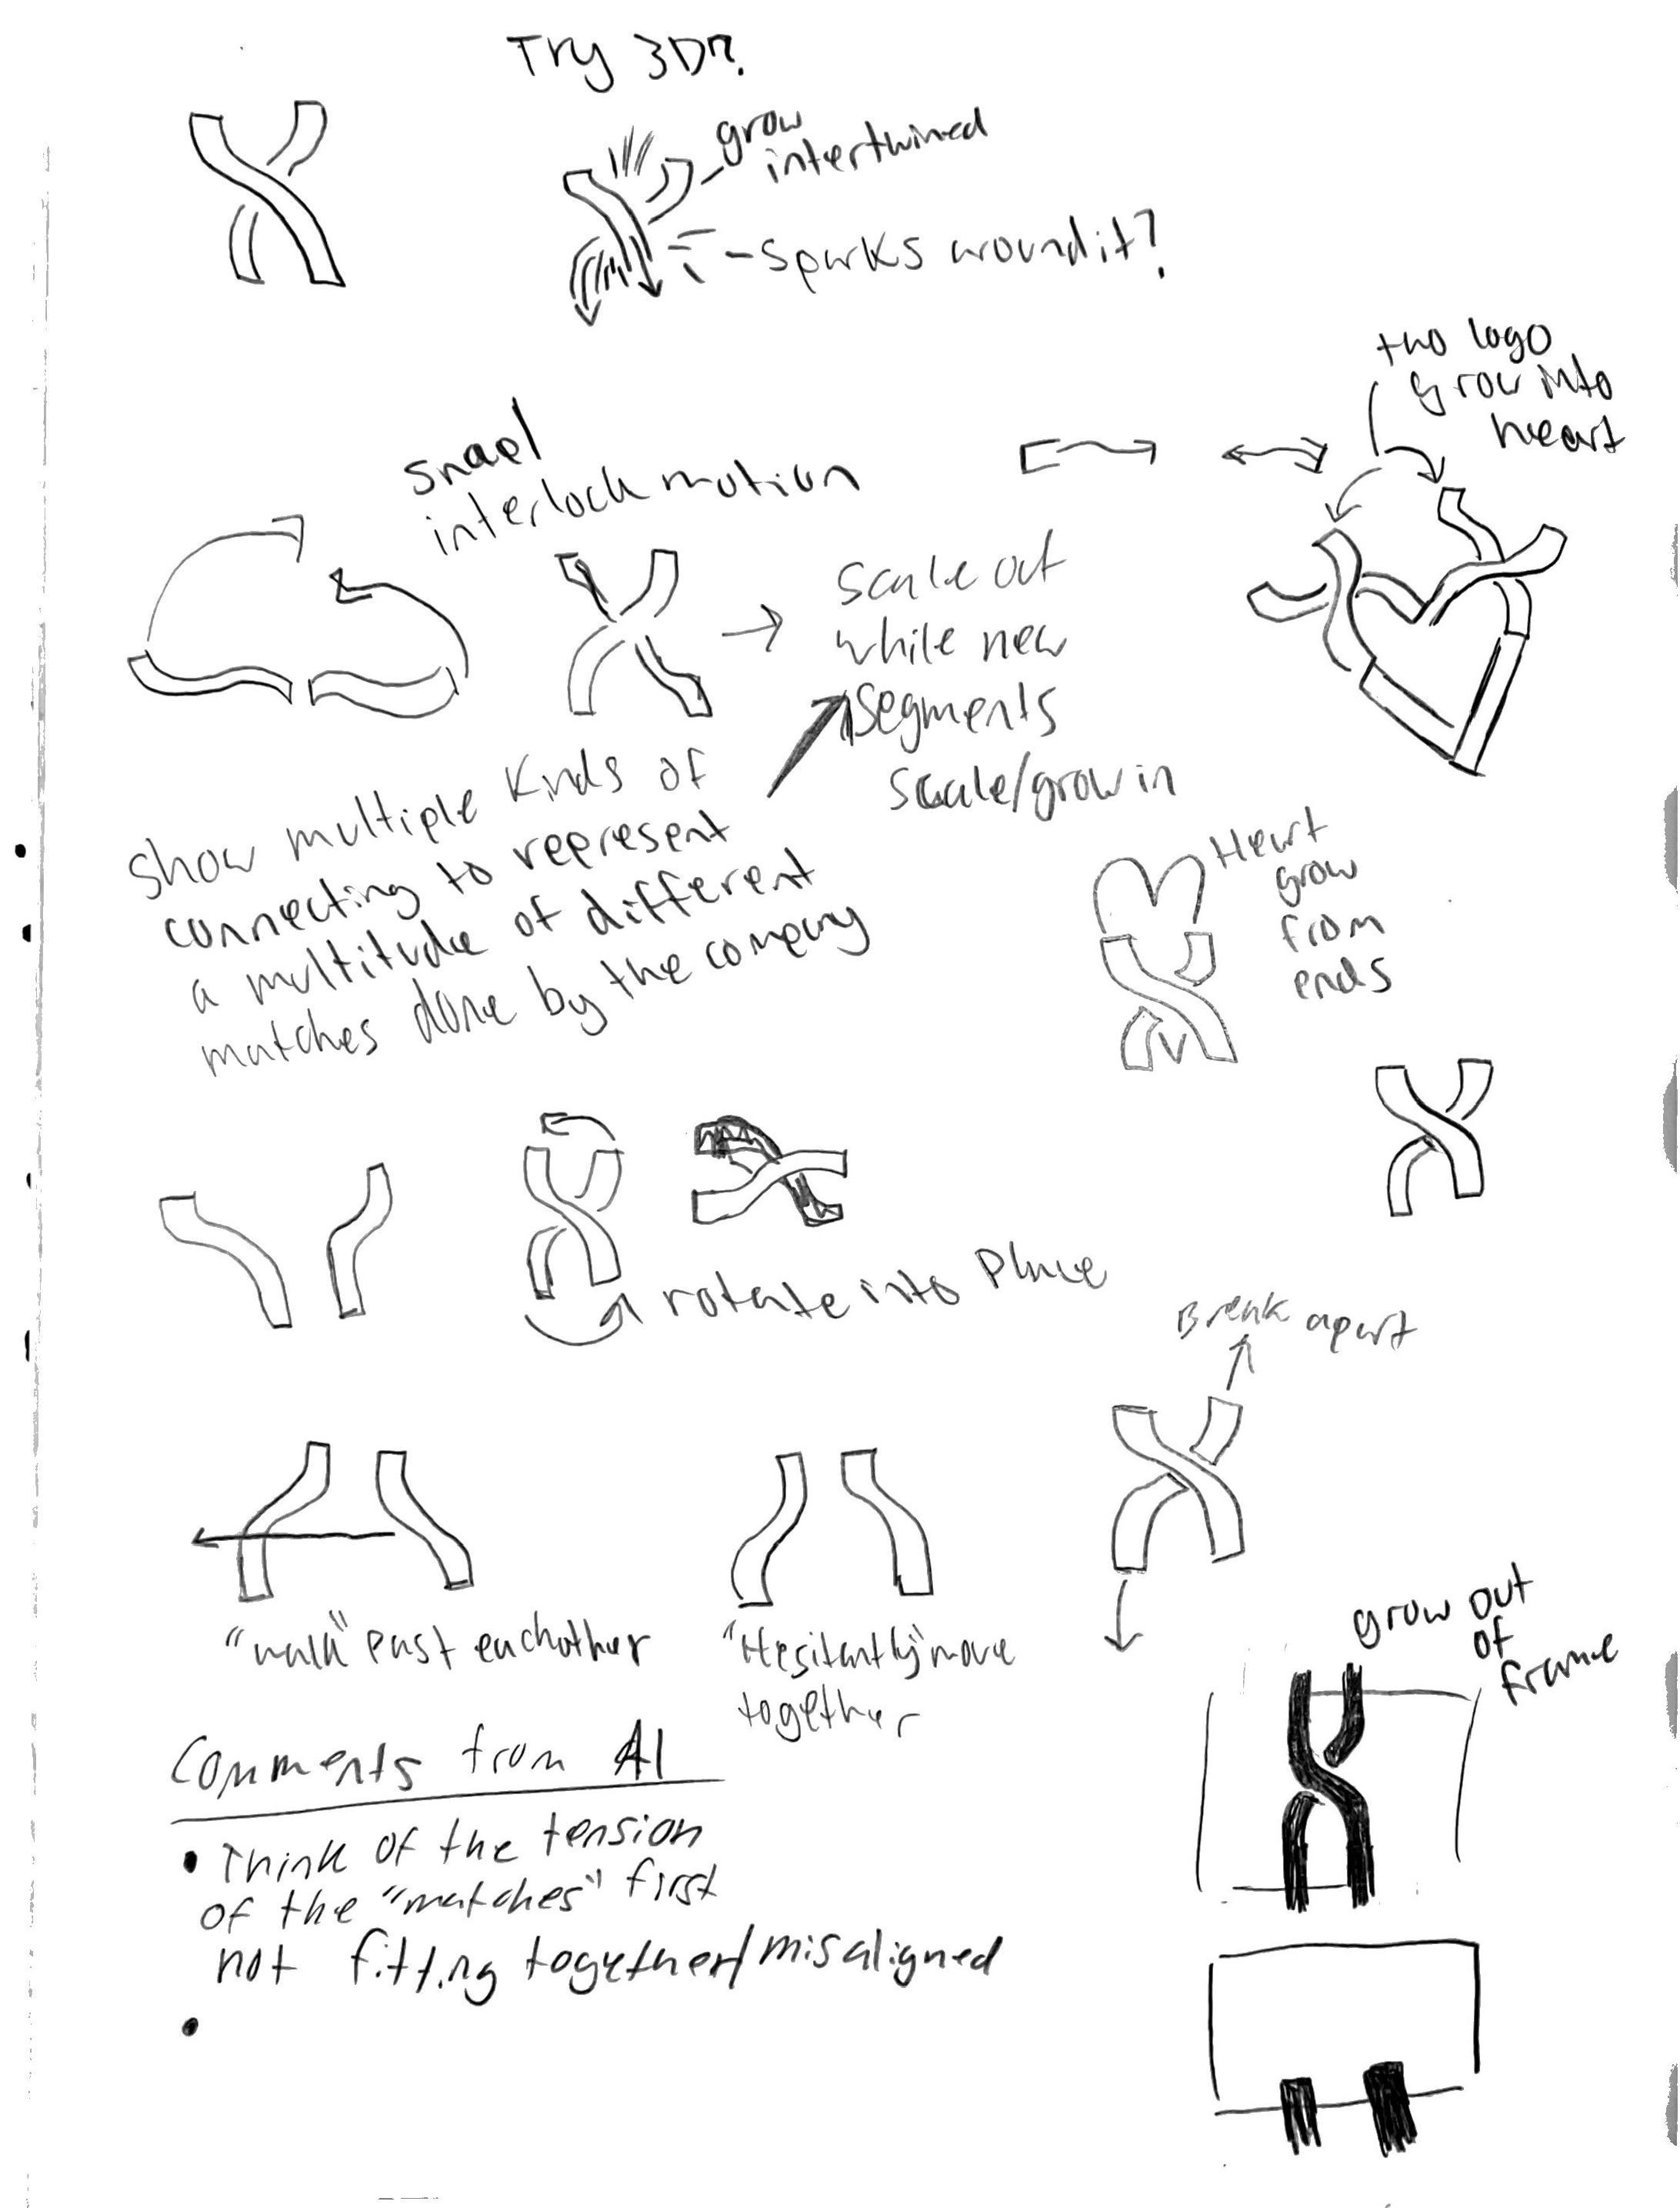 Try 3D?
grow
intertwined
- Sparks around it?
two logo
grow into
heart
snap
interlock motion
Scale out
while new
segments
scale/grow in
Show multiple kinds of
connecting to represent
a multitude of different
matches done by the company
Heart
grow
from
ends
rotate into place
Break apart
"walk" past eachother
"Hesitantly" move
together
grow out
of
frame
Comments from Al
• Think of the tension
of the "matches" first
not fitting together/misaligned
•